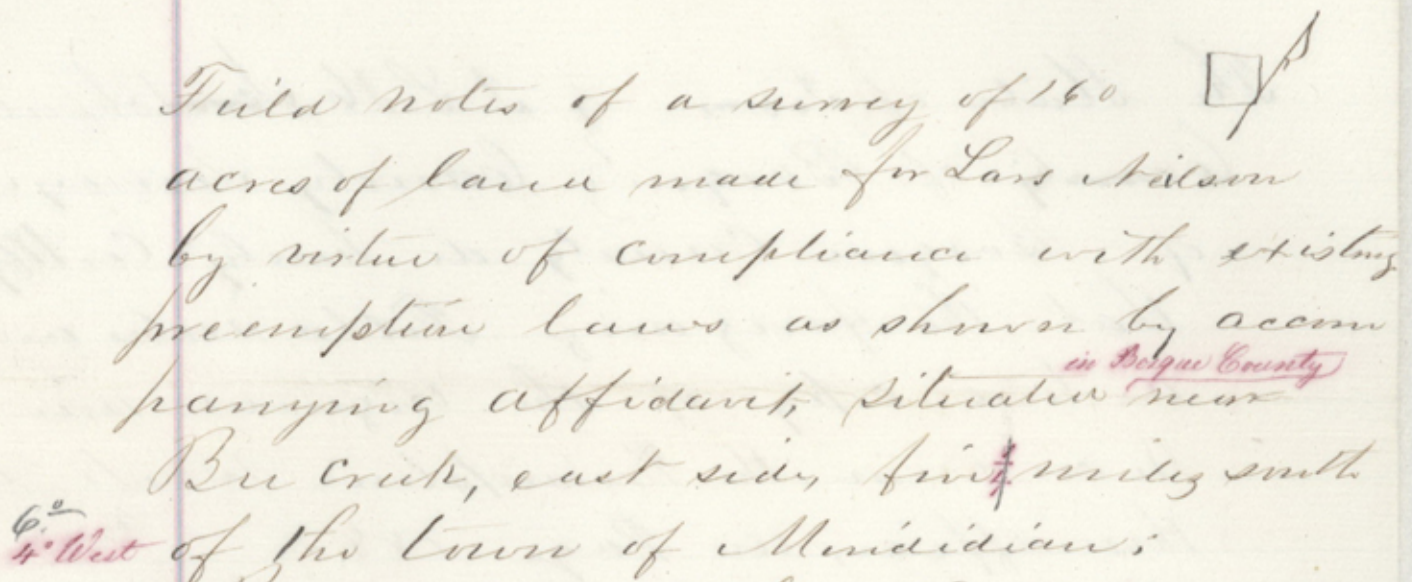 Feild notes of a survey of 160
acres of land made for Lars Neilson
by virtue of compliance with existing
preemption laws as shown by accom
in Bosque County
panying affidavit, situated near
Bee Creek, east side, five miles south
6°
4° West of the town of Merididian;